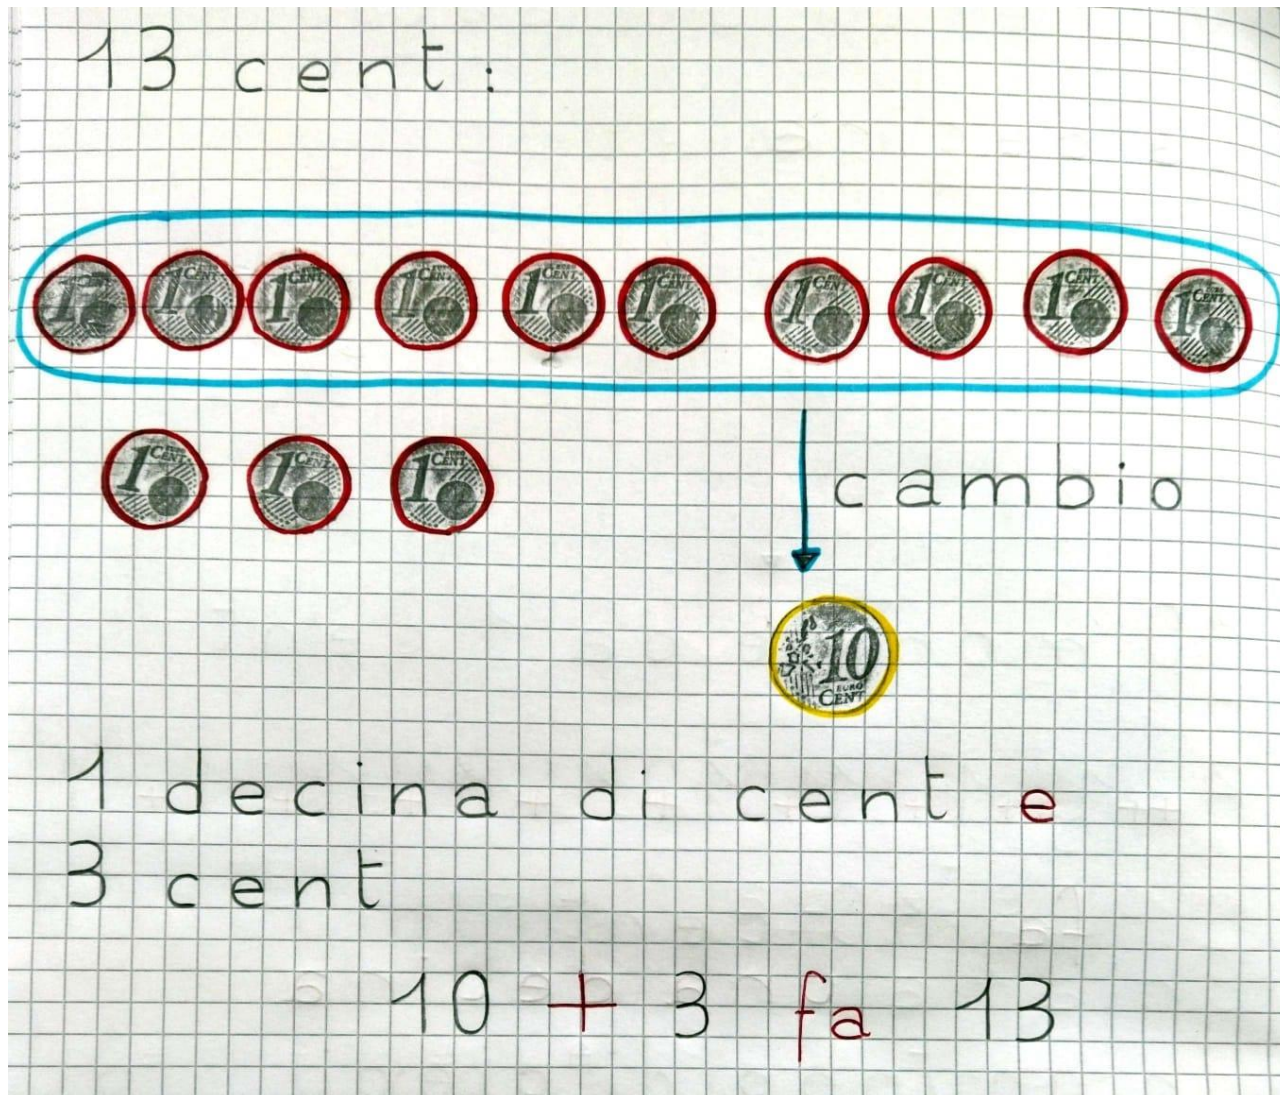 13 cent:
1 CENT 1 CENT 1 CENT 1 CENT 1 CENT 1 CENT 1 CENT 1 CENT 1 CENT 1 CENT
1 CENT 1 CENT 1 CENT
cambio
10 EURO CENT
1 decina di cent e
3 cent
10 + 3 fa 13